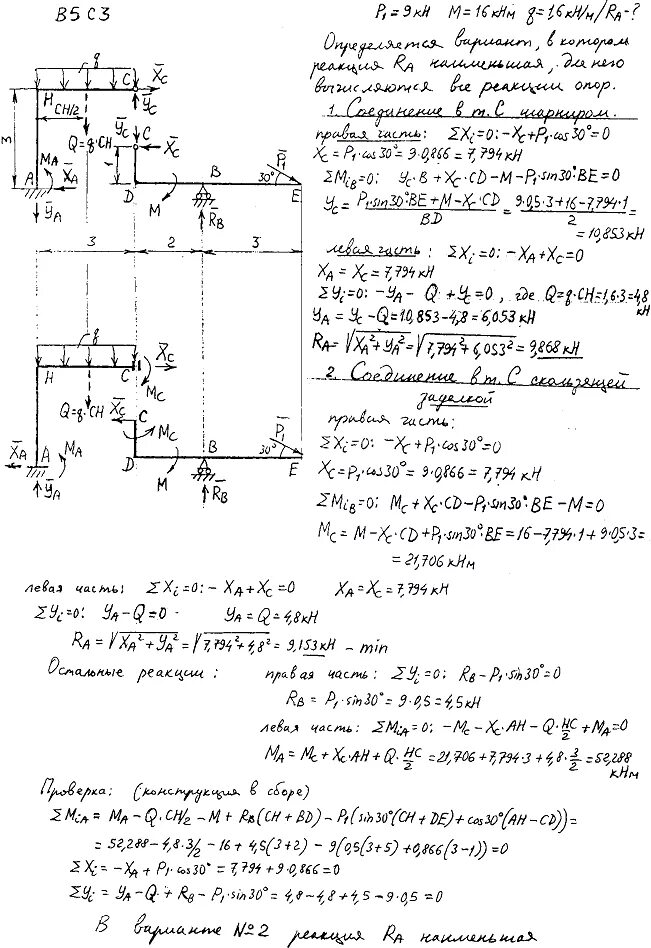 В5 С3
P₁=9кН M=16кНм q=1,6кН/м/R_A-?
Определяется вариант, в котором
реакция R_A наименьшая, для него
вычисляются все реакции опор.
1. Соединение в т. С шарниром.
правая часть: ΣXᵢ=0: -X_C+P₁·cos30°=0
X_C=P₁·cos30°=9·0,866=7,794кН
ΣMᵢ_B=0: Y_C·B+X_C·CD-M-P₁·sin30°·BE=0
Y_C=(P₁·sin30°·BE+M-X_C·CD)/BD=(9·0,5·3+16-7,794·1)/2=
=10,853кН
левая часть: ΣXᵢ=0: -X_A+X_C=0
X_A=X_C=7,794кН
ΣYᵢ=0: -Y_A-Q+Y_C=0, где Q=q·CH=1,6·3=4,8
кН
Y_A=Y_C-Q=10,853-4,8=6,053кН
R_A=√(X_A²+Y_A²)=√(7,794²+6,053²)=9,868кН
2. Соединение в т. С скользящей
заделкой
правая часть:
ΣXᵢ=0: -X_C+P₁·cos30°=0
X_C=P₁·cos30°=9·0,866=7,794кН
ΣMᵢ_B=0: M_C+X_C·CD-P₁·sin30°·BE-M=0
M_C=M-X_C·CD+P₁·sin30°·BE=16-7,794·1+9·0,5·3=
=21,706кНм
q
C
X_C
Y_C
H
CH/2
Y_C
C
X_C
Q=q·CH
3
1
M_A
A
X_A
Y_A
B
P₁
30°
D
M
R_B
E
3
2
3
q
H
C
X_C
M_C
Q=q·CH
X_C
C
M_C
X_A
A
M_A
Y_A
B
P₁
30°
D
M
R_B
E
левая часть: ΣXᵢ=0: -X_A+X_C=0 X_A=X_C=7,794кН
ΣYᵢ=0: Y_A-Q=0 Y_A=Q=4,8кН
R_A=√(X_A²+Y_A²)=√(7,794²+4,8²)=9,153кН - min
Остальные реакции: правая часть: ΣYᵢ=0: R_B-P₁·sin30°=0
R_B=P₁·sin30°=9·0,5=4,5кН
левая часть: ΣMᵢ_A=0: -M_C-X_C·AH-Q·HC/2+M_A=0
M_A=M_C+X_C·AH+Q·HC/2=21,706+7,794·3+4,8·3/2=52,288
кНм
Проверка: (конструкция в сборе)
ΣMᵢ_A=M_A-Q·CH/2-M+R_B(CH+BD)-P₁(sin30°(CH+DE)+cos30°(AH-CD))=
=52,288-4,8·3/2-16+4,5(3+2)-9(0,5(3+5)+0,866(3-1))=0
ΣXᵢ=-X_A+P₁·cos30°=7,794+9·0,866=0
ΣYᵢ=Y_A-Q+R_B-P₁·sin30°=4,8-4,8+4,5-9·0,5=0
В варианте №2 реакция R_A наименьшая